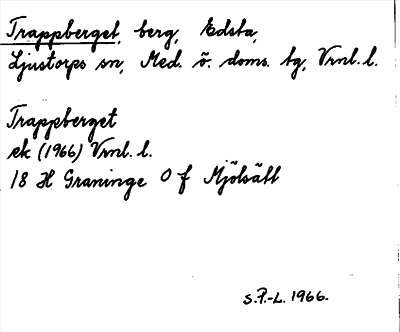 Trappberget, berg, Edsta,
Ljustorps sn, Med. ö. doms. tg, Vrnl. l.
Trappberget
ek (1966) Vrnl. l.
18 H Graninge O f Mjölsätt
S.P.-L. 1966.